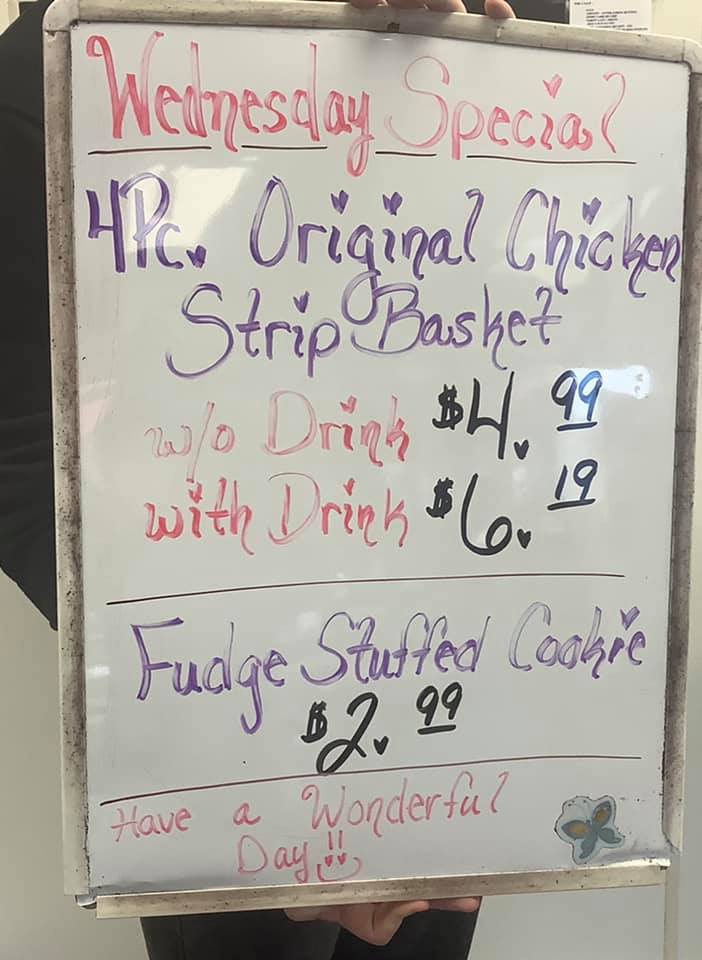 Wednesday Special
4Pc. Original Chicken
Strip Basket
w/o Drink $4.99
with Drink $6.19
Fudge Stuffed Cookie
$2.99
Have a Wonderful
Day!!